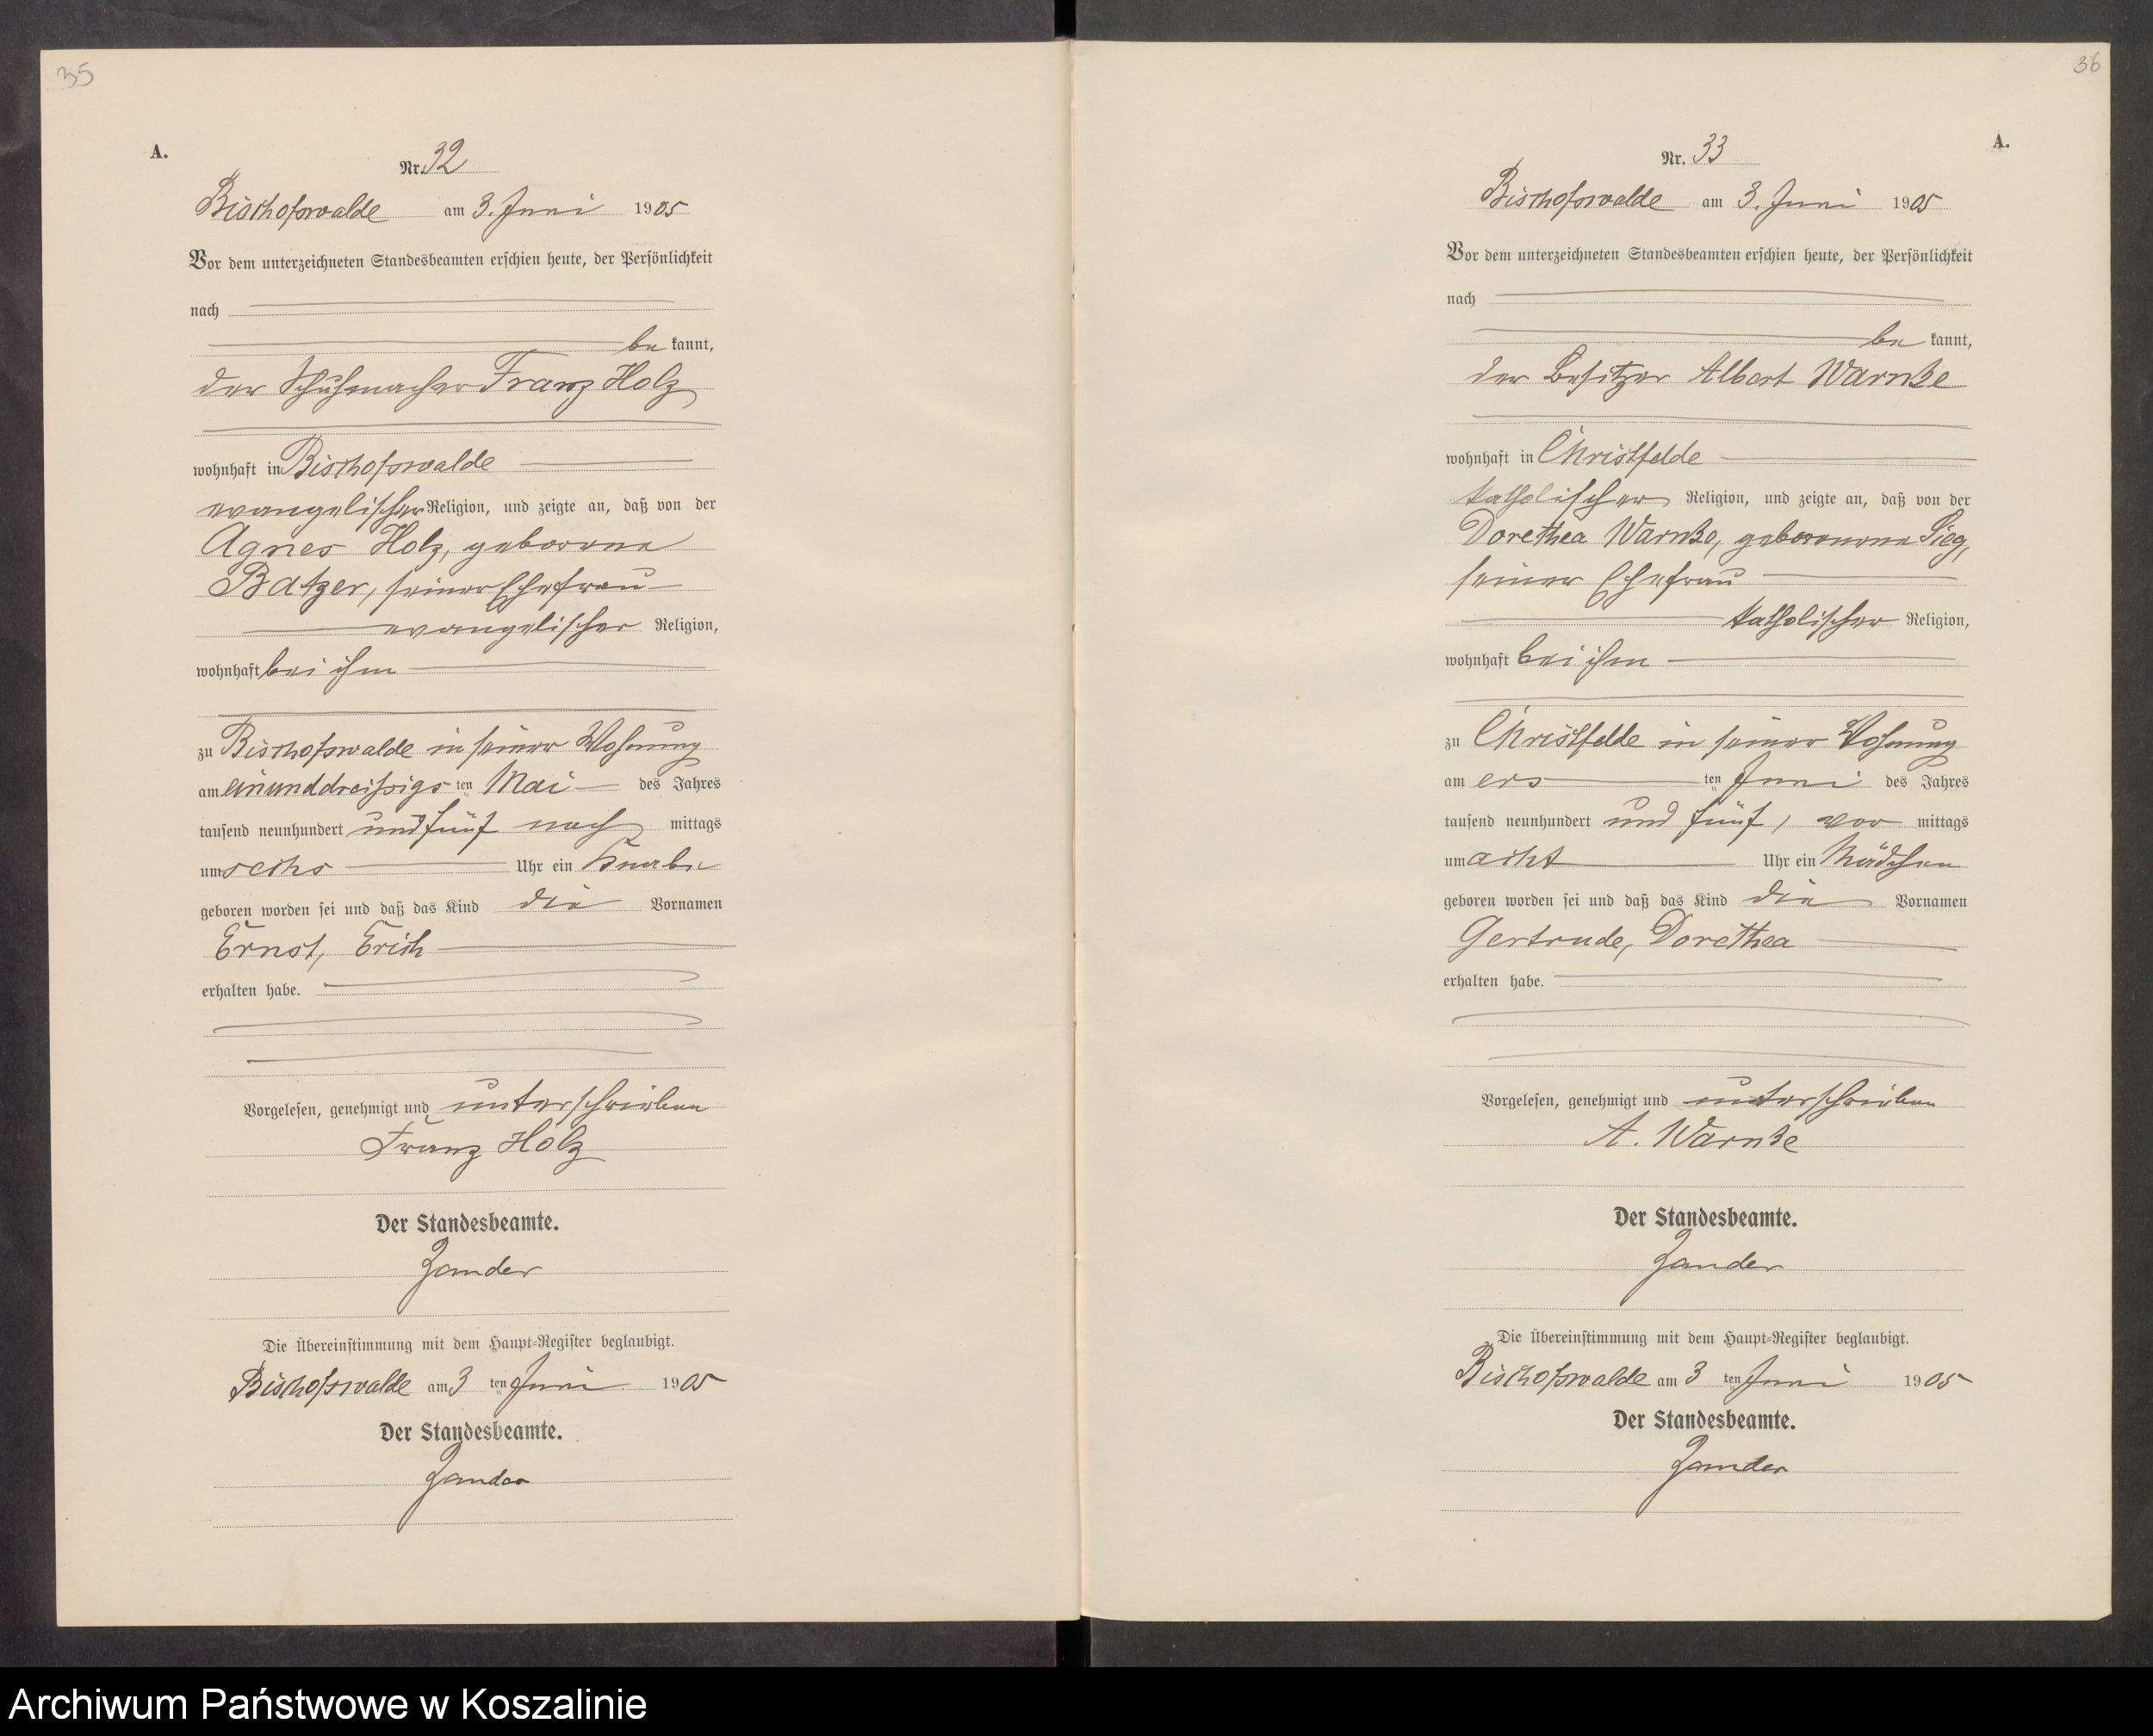 35
A.
Nr. 32
Bischofswalde am 3. Juni 1905
Vor dem unterzeichneten Standesbeamten erschien heute, der Persönlichkeit
nach
be kannt,
der Schuhmacher Franz Holz
wohnhaft in Bischofswalde
evangelischer Religion, und zeigte an, daß von der
Agnes Holz, geborene
Batzer, seiner Ehefrau
evangelischer Religion,
wohnhaft bei ihm
zu Bischofswalde in seiner Wohnung
am einunddreißigs ten Mai des Jahres
tausend neunhundert und fünf nach mittags
um sechs Uhr ein Knabe
geboren worden sei und daß das Kind die Vornamen
Ernst, Erich
erhalten habe.
Vorgelesen, genehmigt und unterschrieben
Franz Holz
Der Standesbeamte.
Zander
Die Übereinstimmung mit dem Haupt-Register beglaubigt.
Bischofswalde am 3 ten Juni 1905
Der Standesbeamte.
Zander
36
A.
Nr. 33
Bischofswalde am 3. Juni 1905
Vor dem unterzeichneten Standesbeamten erschien heute, der Persönlichkeit
nach
be kannt,
der Besitzer Albert Warnke
wohnhaft in Christfelde
katholischer Religion, und zeigte an, daß von der
Dorethea Warnke, geborenene Sieg,
seiner Ehefrau
katholischer Religion,
wohnhaft bei ihm
zu Christfelde in seiner Wohnung
am ers ten Juni des Jahres
tausend neunhundert und fünf, vor mittags
um acht Uhr ein Mädchen
geboren worden sei und daß das Kind die Vornamen
Gertrude, Dorethea
erhalten habe.
Vorgelesen, genehmigt und unterschrieben
A. Warnke
Der Standesbeamte.
Zander
Die Übereinstimmung mit dem Haupt-Register beglaubigt.
Bischofswalde am 3 ten Juni 1905
Der Standesbeamte.
Zander
Archiwum Państwowe w Koszalinie